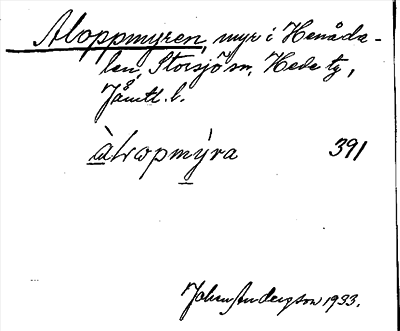 Aloppmyren, myr i Henåda-
len, Storsjö sn, Hede tg,
Jämtl. l.
àlωpmýra 391
Johan Anderzson 1933.